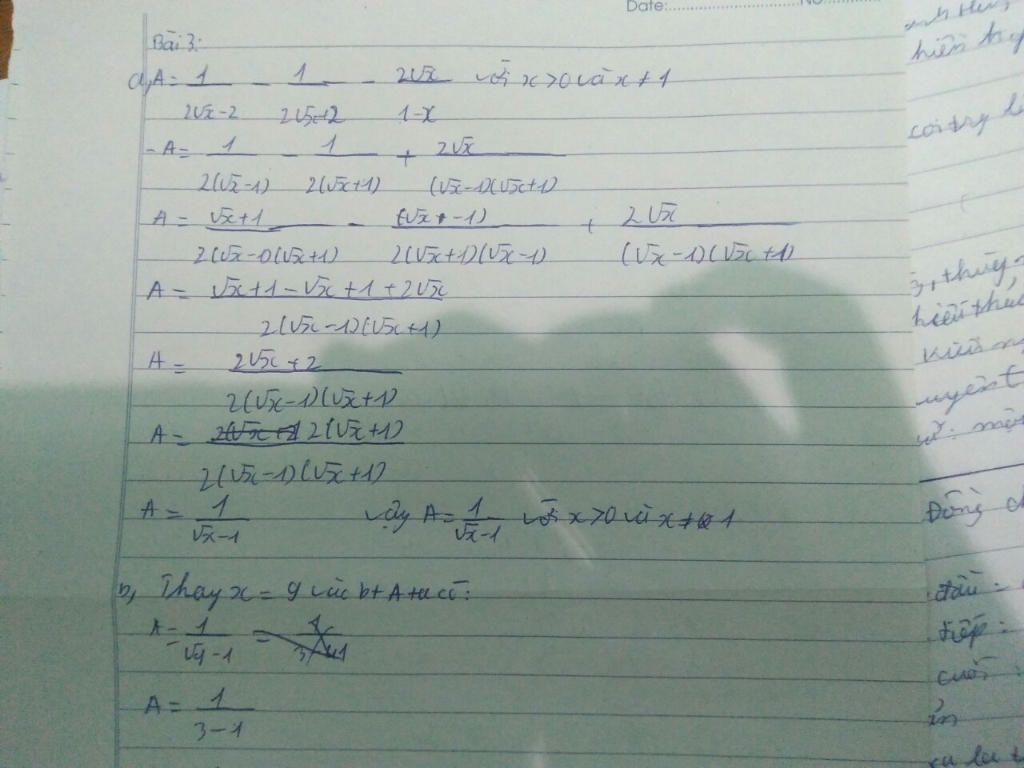 Date: No
Bài 3:
a, A = 1/(2√x-2) - 1/(2√x+2) - 2√x/(1-x) với x>0 và x≠1
- A = 1/(2(√x-1)) - 1/(2(√x+1)) + 2√x/((√x-1)(√x+1))
A = (√x+1)/(2(√x-1)(√x+1)) - (√x-1)/(2(√x+1)(√x-1)) + 2√x/((√x-1)(√x+1))
A = (√x+1-√x+1+2√x)/(2(√x-1)(√x+1))
A = (2√x+2)/(2(√x-1)(√x+1))
A = 2(√x+1)/(2(√x-1)(√x+1))
A = 1/(√x-1) vậy A = 1/(√x-1) với x>0 và x≠1
b, Thay x = 9 vào bt A ta có:
A = 1/(√9-1) =
A = 1/(3-1)
hiện
thủy
hiểu
Kiến
Đồng
đầu:
tiếp:
cuối:
ỉn